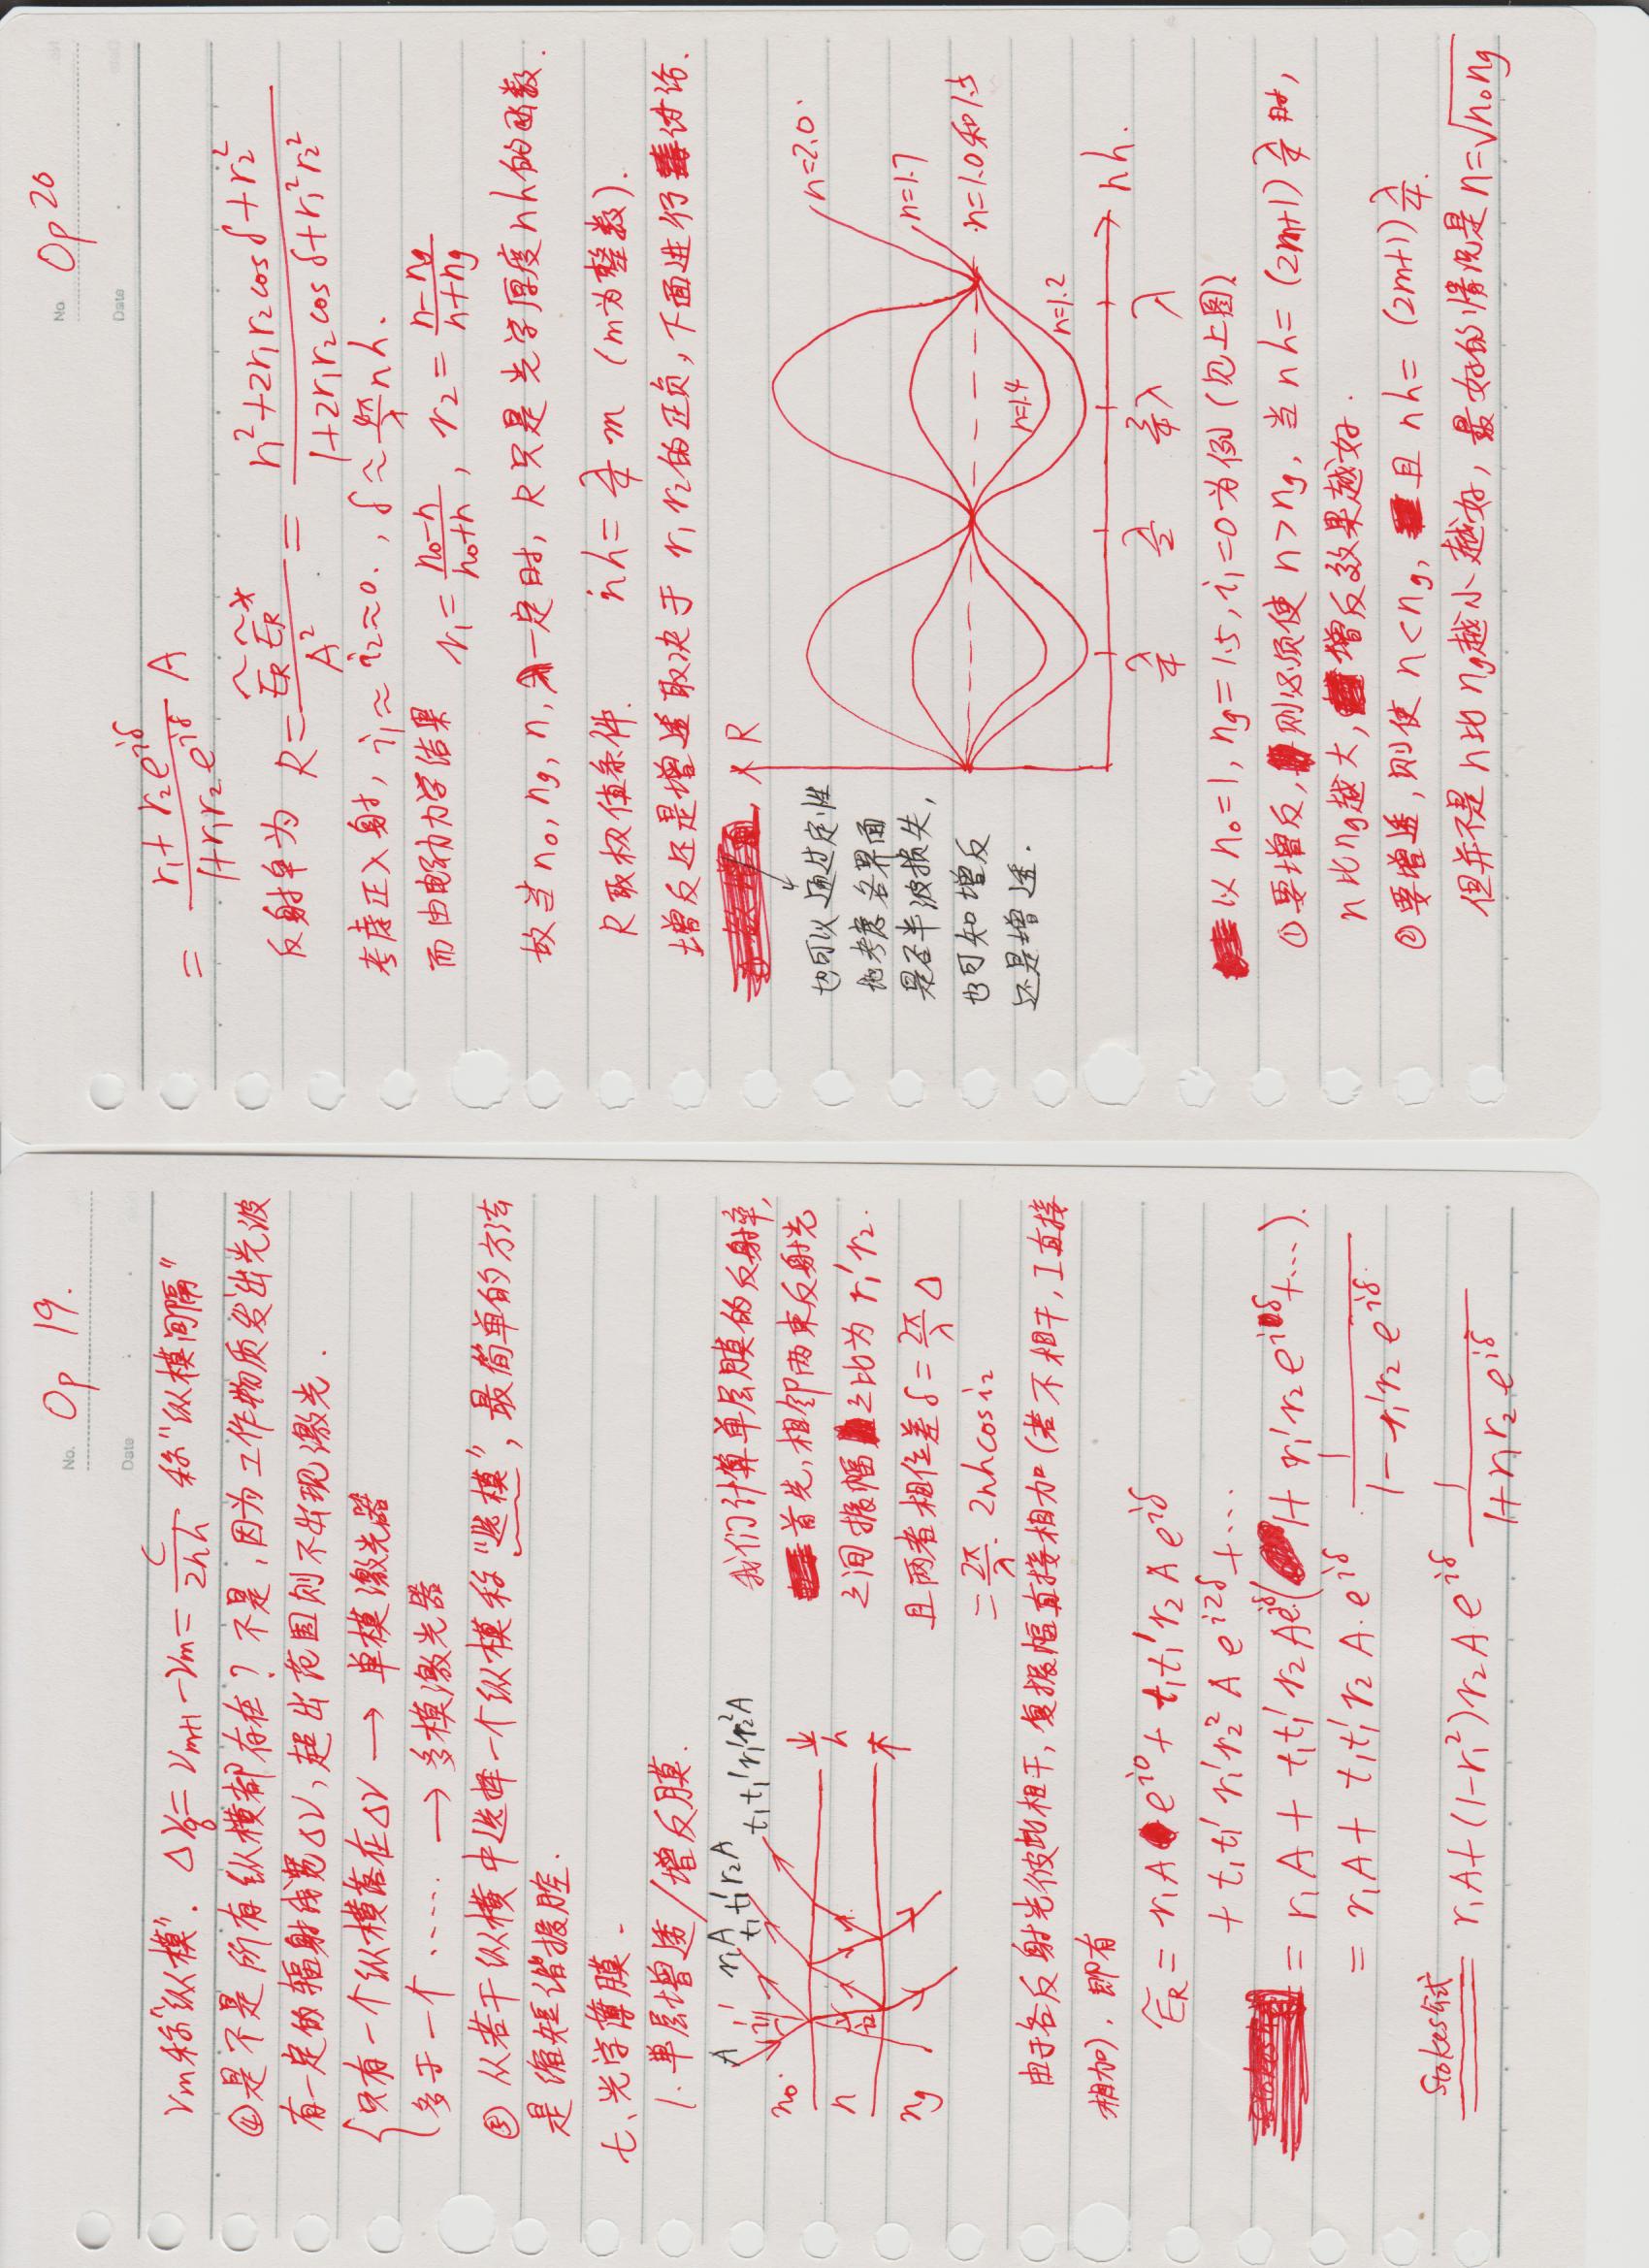 No. Op 19.
Date
νm称"纵模". Δνq = νm+1 - νm = c/2nh 称"纵模间隔"
④是不是所有纵横都存在？不是，因为工作物质发出光波
有一定的辐射线宽Δν，超出范围则不出现激光.
{只有一个纵横落在Δν → 单模激光器
多于一个 ····· → 多模激光器
⑤ 从若干纵横中选择一个纵模称"选模"，最简单的方法
是缩短谐振腔.
七、光学薄膜.
1. 单层增透/增反膜.
A i1 r1A t1t1'r2A t1t1'r1'r2²A
n0
n i2 h
ng
我们计算单层膜的反射率，
首先，相邻两束反射光
之间振幅之比为 r1'r2.
且两者相位差 δ = 2π/λ Δ
= 2π/λ · 2nhcos i2
由于各反射光彼此相干，复振幅直接相加（若不相干，I直接
相加）. 即有
ẼR = r1A e^{i0} + t1t1'r2 A e^{iδ}
+ t1t1' r1'r2² A e^{i2δ} + ···
= r1A + t1t1' r2 A e^{iδ} (1 + r1'r2 e^{iδ} + ···).
= r1A + t1t1' r2 A · e^{iδ} 1/(1 - r1'r2 e^{iδ})
Stokes公式
r1A + (1-r1²) r2 A e^{iδ} 1/(1 + r1r2 e^{iδ})
No Op 20
Date
= (r1 + r2 e^{iδ})/(1 + r1r2 e^{iδ}) A
反射率为 R = ẼR ẼR*/A² = (r1² + 2r1r2 cos δ + r2²)/(1 + 2r1r2 cos δ + r1²r2²)
考虑正入射，i1 ≈ i2 ≈ 0. , δ ≈ 4π/λ nh.
而由电动力学结果 r1 = (n0-n)/(n0+n) , r2 = (n-ng)/(n+ng)
故当 n0, ng, n, λ一定时，R只是光学厚度nh的函数.
R取极值条件. nh = λ/4 m (m为整数).
增反还是增透取决于 r1 r2的正负，下面进行讨论.
也可以通过定性
地考虑各界面
是否半波损失，
也可知增反
还是增透.
R
n=2.0
n=1.7
n=1.0和1.5
n=1.4
n=1.2
nh.
λ/4 λ/2 3/4λ λ
以 n0=1, ng=1.5, i1=0为例（见上图）
①要增反，则必须使 n>ng，当 nh = (2m+1) λ/4 时，
n比ng越大，增反效果越好.
②要增透，则使 n<ng，且 nh = (2m+1) λ/4.
但并不是 n比 ng越小越好，最好的情况是 n=√n0ng